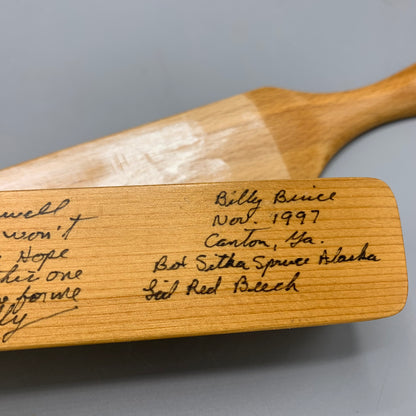 well
won't
Hope
this one
for me
Billy Bruce
Nov. 1997
Canton, Ga.
Bot Sitka Spruce Alaska
Lid Red Beech